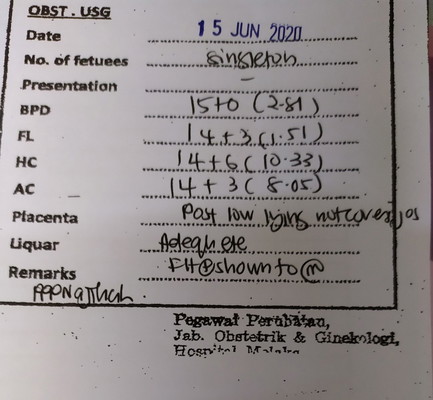 OBST. USG
Date 15 JUN 2020
No. of fetuees singleton
Presentation -
BPD 15+0 (2.81)
FL 14+3 (1.51)
HC 14+6 (10.33)
AC 14+3 (8.05)
Placenta Post low lying not covering os
Liquar Adequate
Remarks FH shown to
Pegawai Perubatan,
Jab. Obstetrik & Ginekologi,
Hospital Melaka